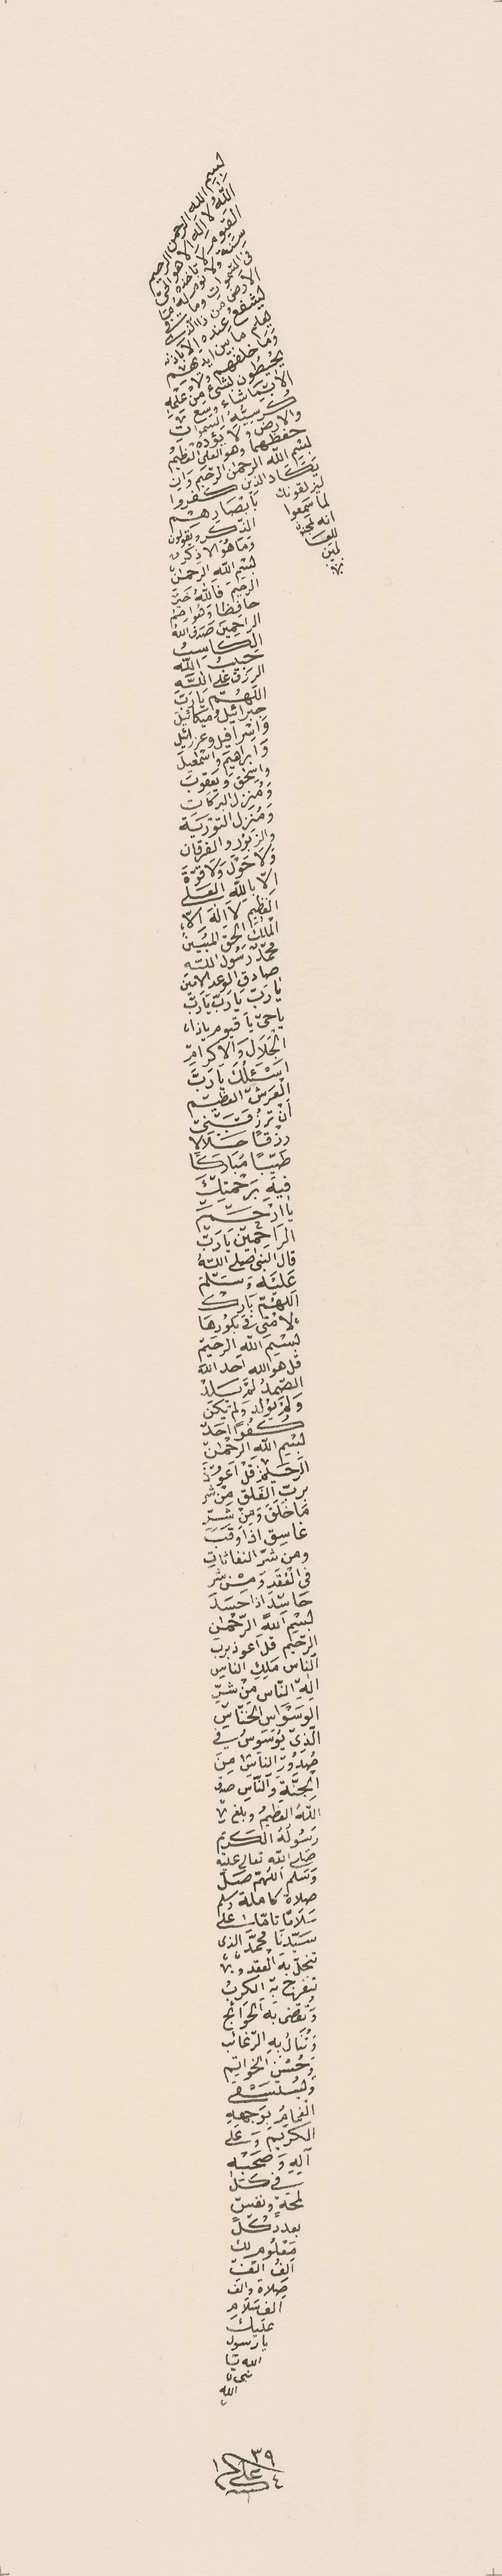 بسم الله الرحمن الرحيم
الله لا اله الا هو الحى
القيوم لا تأخذه
سنة ولا نوم له ما
فى السموات وما فى
الارض من ذا الذى
يشفع عنده الا باذنه
يعلم ما بين ايديهم
وما خلفهم ولا
يحيطون بشئ من علمه
الا بما شاء وسع
كرسيه السموات
والارض ولا يؤده
حفظهما وهو العلى العظيم
بسم الله الرحمن الرحيم وان
يكاد الذين كفروا
ليزلقونك بأبصارهم
لما سمعوا الذكر ويقولون
انه لمجنون وما هو الا ذكر
للعالمين
بسم الله الرحمن
الرحيم فالله خير
حافظا وهو ارحم
الراحمين صدق الله
الكاسب
حبيب الله
الرزق على الله
اللهم يا رب
جبرائيل وميكائيل
واسرافيل وعزرائيل
وابراهيم واسمعيل
واسحق ويعقوب
ومنزل البركات
ومنزل التورية
والزبور والفرقان
ولا حول ولا قوة
الا بالله العلى
العظيم لا اله الا
الملك الحق المبين
محمد رسول الله
صادق الوعد الامين
يا رب يا رب يا رب
يا حى يا قيوم يا ذا
الجلال والاكرام
اسئلك يا رب
العرش العظيم
ان ترزقنى
رزقا حلالا
طيبا مباركا
فيه برحمتك
يا ارحم
الراحمين يا رب
قال النبى صلى الله
عليه وسلم
اللهم بارك
لامتى فى بكورها
بسم الله الرحيم
قل هو الله احد الله
الصمد لم يلد
ولم يولد ولم يكن
كفوا احد
بسم الله الرحمن
الرحيم قل اعوذ
برب الفلق من شر
ما خلق ومن شر
غاسق اذا وقب
ومن شر النفاثات
فى العقد ومن شر
حاسد اذا حسد
بسم الله الرحمن
الرحيم قل اعوذ برب
الناس ملك الناس
اله الناس من شر
الوسواس الخناس
الذى يوسوس فى
صدور الناس من
الجنة والناس صدق
الله العظيم وبلغ
رسوله الكريم
صلى الله تعالى عليه
وسلم اللهم صل
صلاة كاملة وسلم
سلاما تاما على
سيدنا محمد الذى
تنحل به العقد و
تنفرج به الكرب
وتقضى به الحوائج
وتنال به الرغائب
وحسن الخواتيم
ويستسقى
الغمام بوجهه
الكريم وعلى
آله وصحبه
فى كل
لمحة ونفس
بعدد كل
معلوم لك
الف الف
صلاة والف
الف سلام
عليك
يا رسول
الله يا
نبى
الله
٣٩
١ على ٤